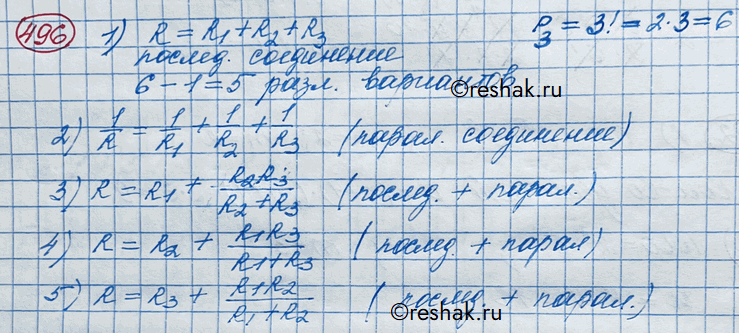 496 1) R = R₁ + R₂ + R₃ P₃ = 3! = 2·3 = 6
послед. соединение
6 – 1 = 5 разл. вариантов
©reshak.ru
2) 1/R = 1/R₁ + 1/R₂ + 1/R₃ (парал. соединение)
3) R = R₁ + R₂R₃/R₂+R₃ (послед. + парал.)
4) R = R₂ + R₁R₃/R₁+R₃ (послед. + парал)
5) R = R₃ + R₁R₂/R₁+R₂ (послед. + парал.)
©reshak.ru